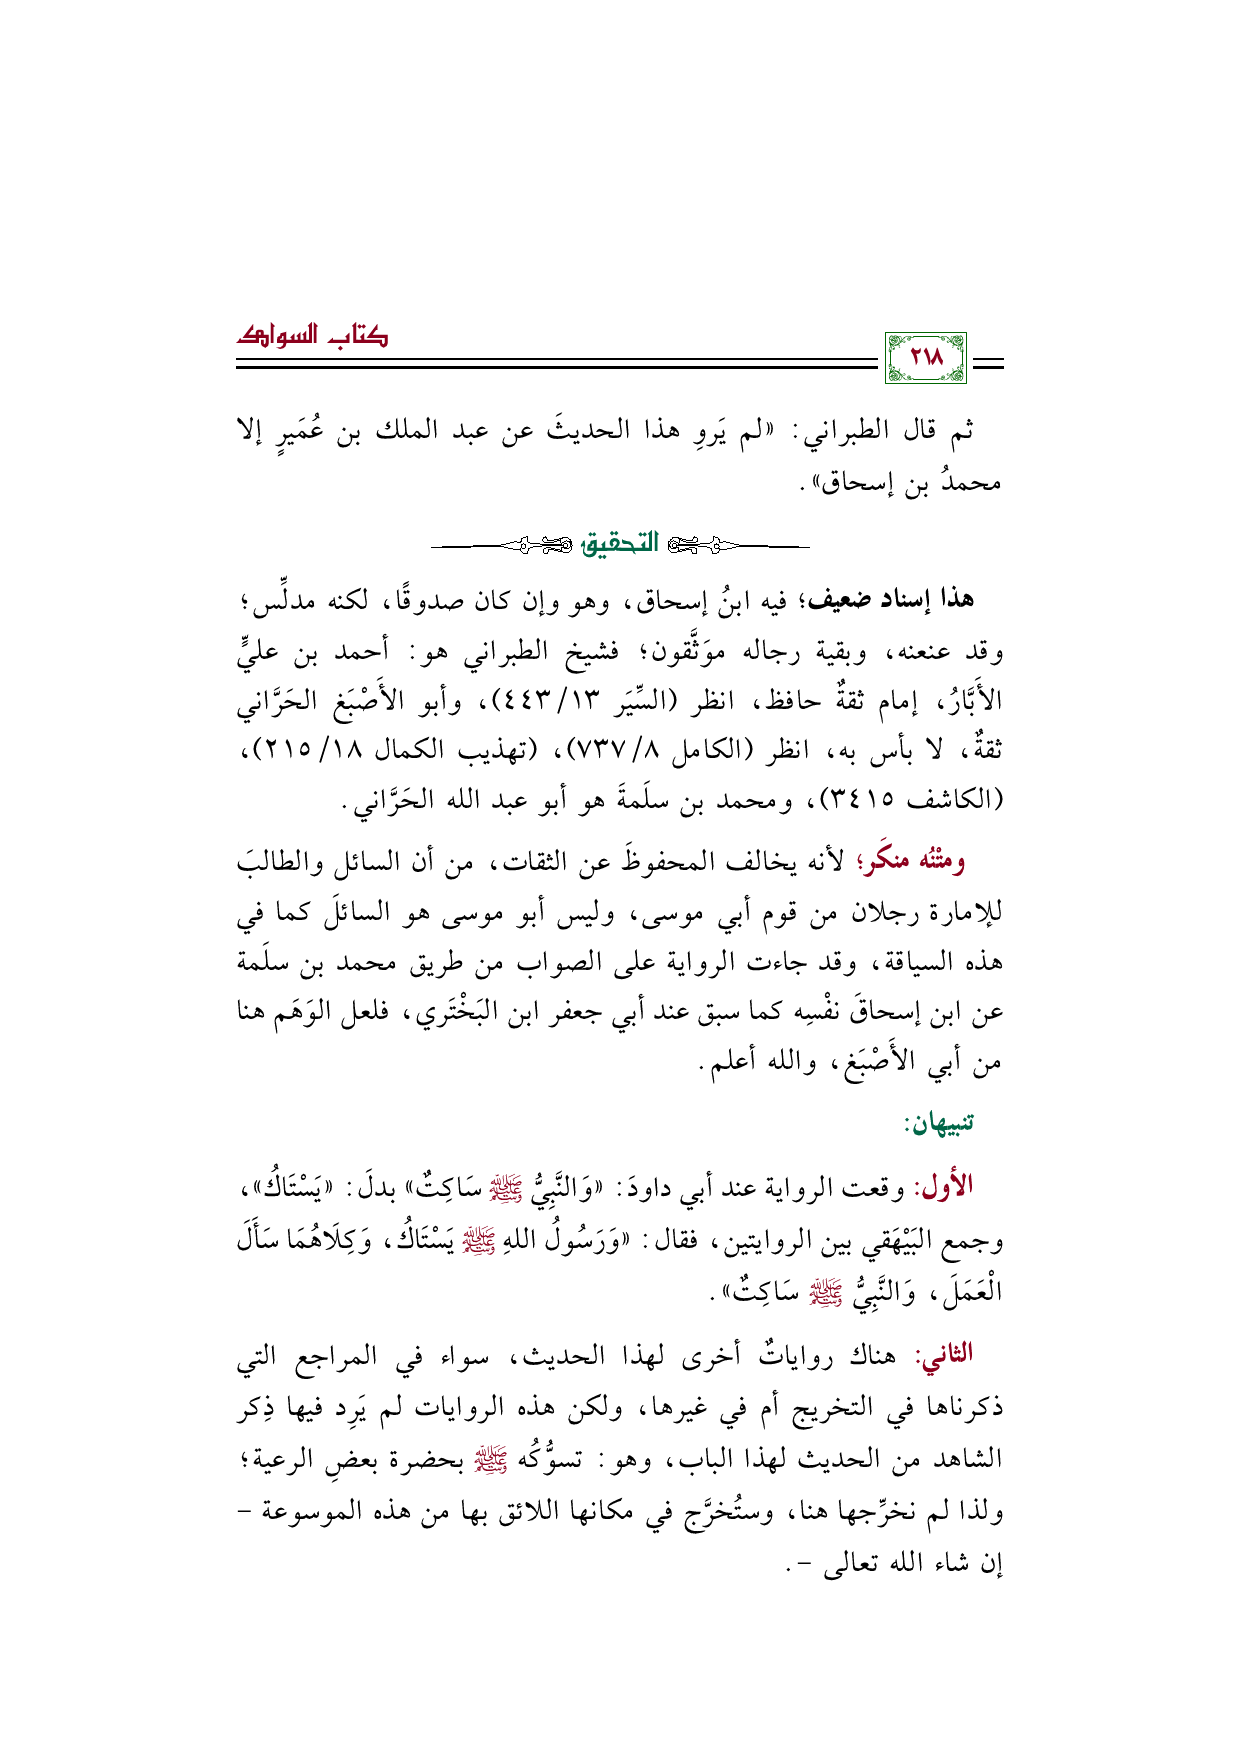 كتاب السواك
٢١٨
ثم قال الطبراني: «لم يَروِ هذا الحديثَ عن عبد الملك بن عُمَيرٍ إلا
محمدُ بن إسحاق».
التحقيق
هذا إسناد ضعيف؛ فيه ابنُ إسحاق، وهو وإن كان صدوقًا، لكنه مدلِّس؛
وقد عنعنه، وبقية رجاله موَثَّقون؛ فشيخ الطبراني هو: أحمد بن عليٍّ
الأَبَّارُ، إمام ثقةٌ حافظ، انظر (السِّيَر ١٣/ ٤٤٣)، وأبو الأَصْبَغ الحَرَّاني
ثقةٌ، لا بأس به، انظر (الكامل ٨/ ٧٣٧)، (تهذيب الكمال ١٨/ ٢١٥)،
(الكاشف ٣٤١٥)، ومحمد بن سلَمةَ هو أبو عبد الله الحَرَّاني.
ومتْنُه منكَر؛ لأنه يخالف المحفوظَ عن الثقات، من أن السائل والطالبَ
للإمارة رجلان من قوم أبي موسى، وليس أبو موسى هو السائلَ كما في
هذه السياقة، وقد جاءت الرواية على الصواب من طريق محمد بن سلَمة
عن ابن إسحاقَ نفْسِه كما سبق عند أبي جعفر ابن البَخْتَري، فلعل الوَهَم هنا
من أبي الأَصْبَغ، والله أعلم.
تنبيهان:
الأول: وقعت الرواية عند أبي داودَ: «وَالنَّبِيُّ ﷺ سَاكِتٌ» بدلَ: «يَسْتَاكُ»،
وجمع البَيْهَقي بين الروايتين، فقال: «وَرَسُولُ اللهِ ﷺ يَسْتَاكُ، وَكِلَاهُمَا سَأَلَ
الْعَمَلَ، وَالنَّبِيُّ ﷺ سَاكِتٌ».
الثاني: هناك رواياتٌ أخرى لهذا الحديث، سواء في المراجع التي
ذكرناها في التخريج أم في غيرها، ولكن هذه الروايات لم يَرِد فيها ذِكر
الشاهد من الحديث لهذا الباب، وهو: تسوُّكُه ﷺ بحضرة بعضِ الرعية؛
ولذا لم نخرِّجها هنا، وستُخرَّج في مكانها اللائق بها من هذه الموسوعة -
إن شاء الله تعالى -.